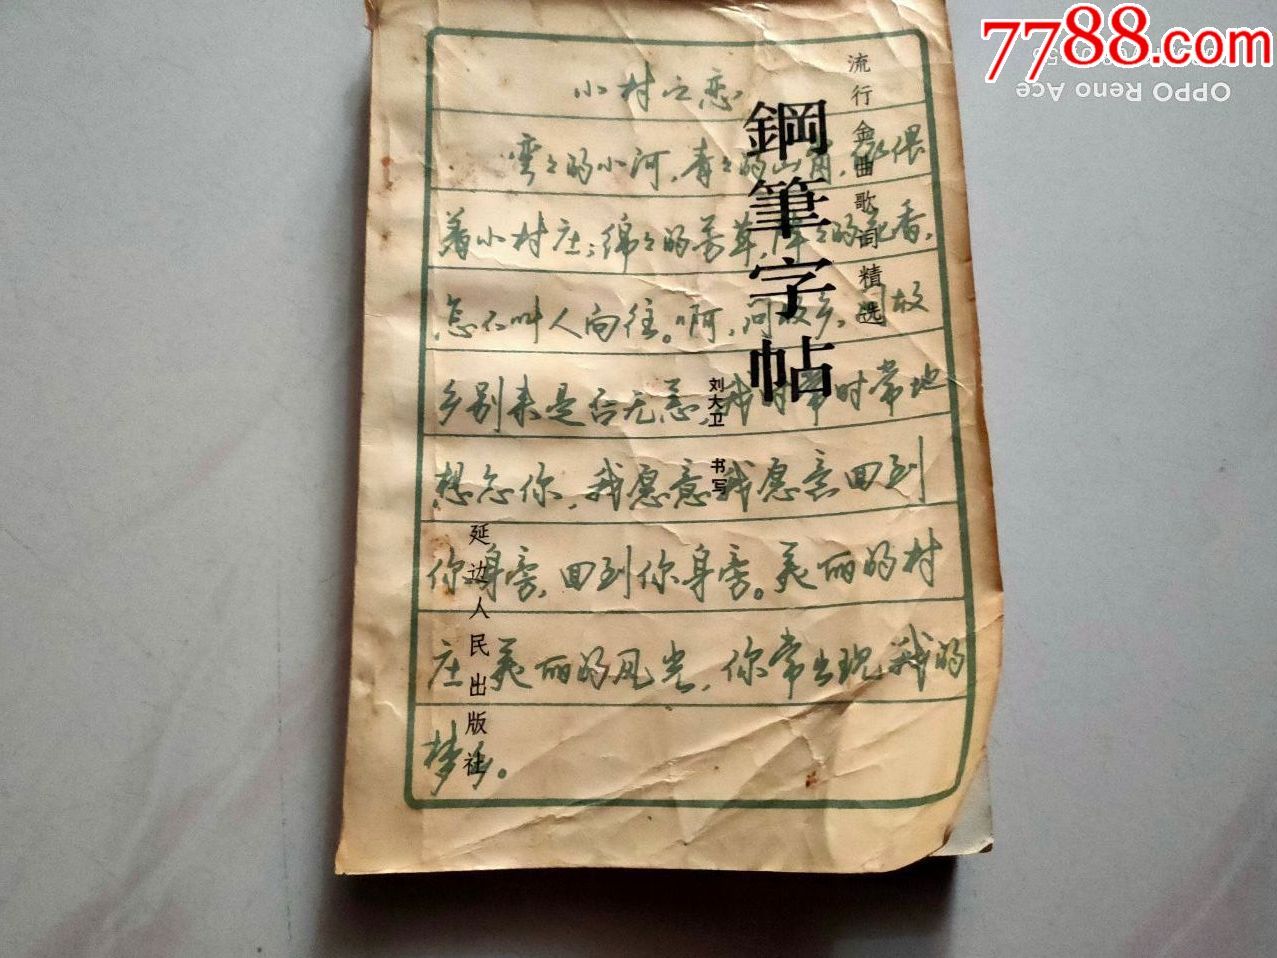 7788.com
OPPO Reno Ace
流行金曲歌词精选
鋼筆字帖
刘大卫 书写
延边人民出版社
小村之恋
弯々的小河，青々的山岗，依偎
着小村庄；绵々的芳草，阵々的花香，
怎不叫人向往。啊，问故乡，问故
乡别来是否无恙，我时常时常地
想念你，我愿意我愿意回到
你身旁，回到你身旁。美丽的村
庄美丽的风光，你常出现我的
梦乡。